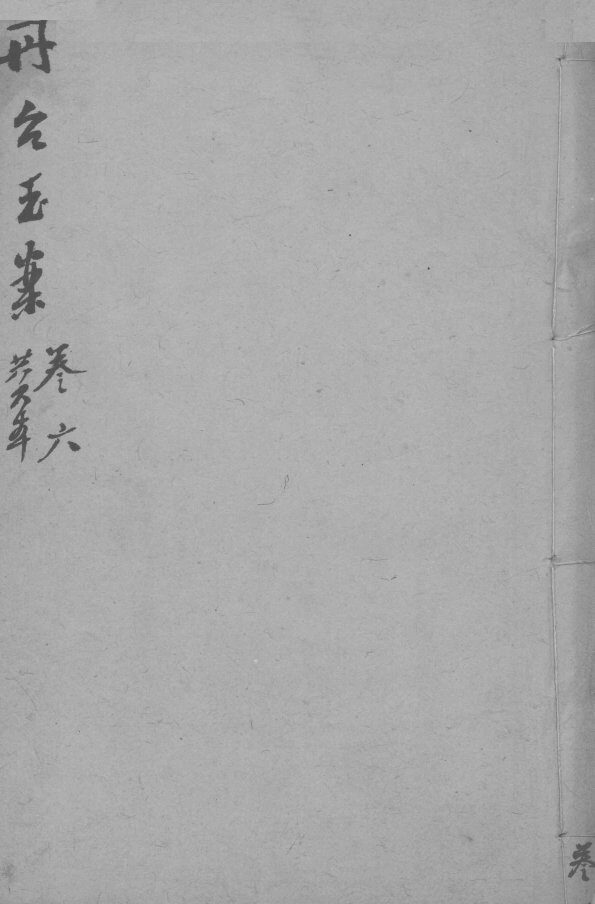 丹台玉案
卷六
共六本
卷